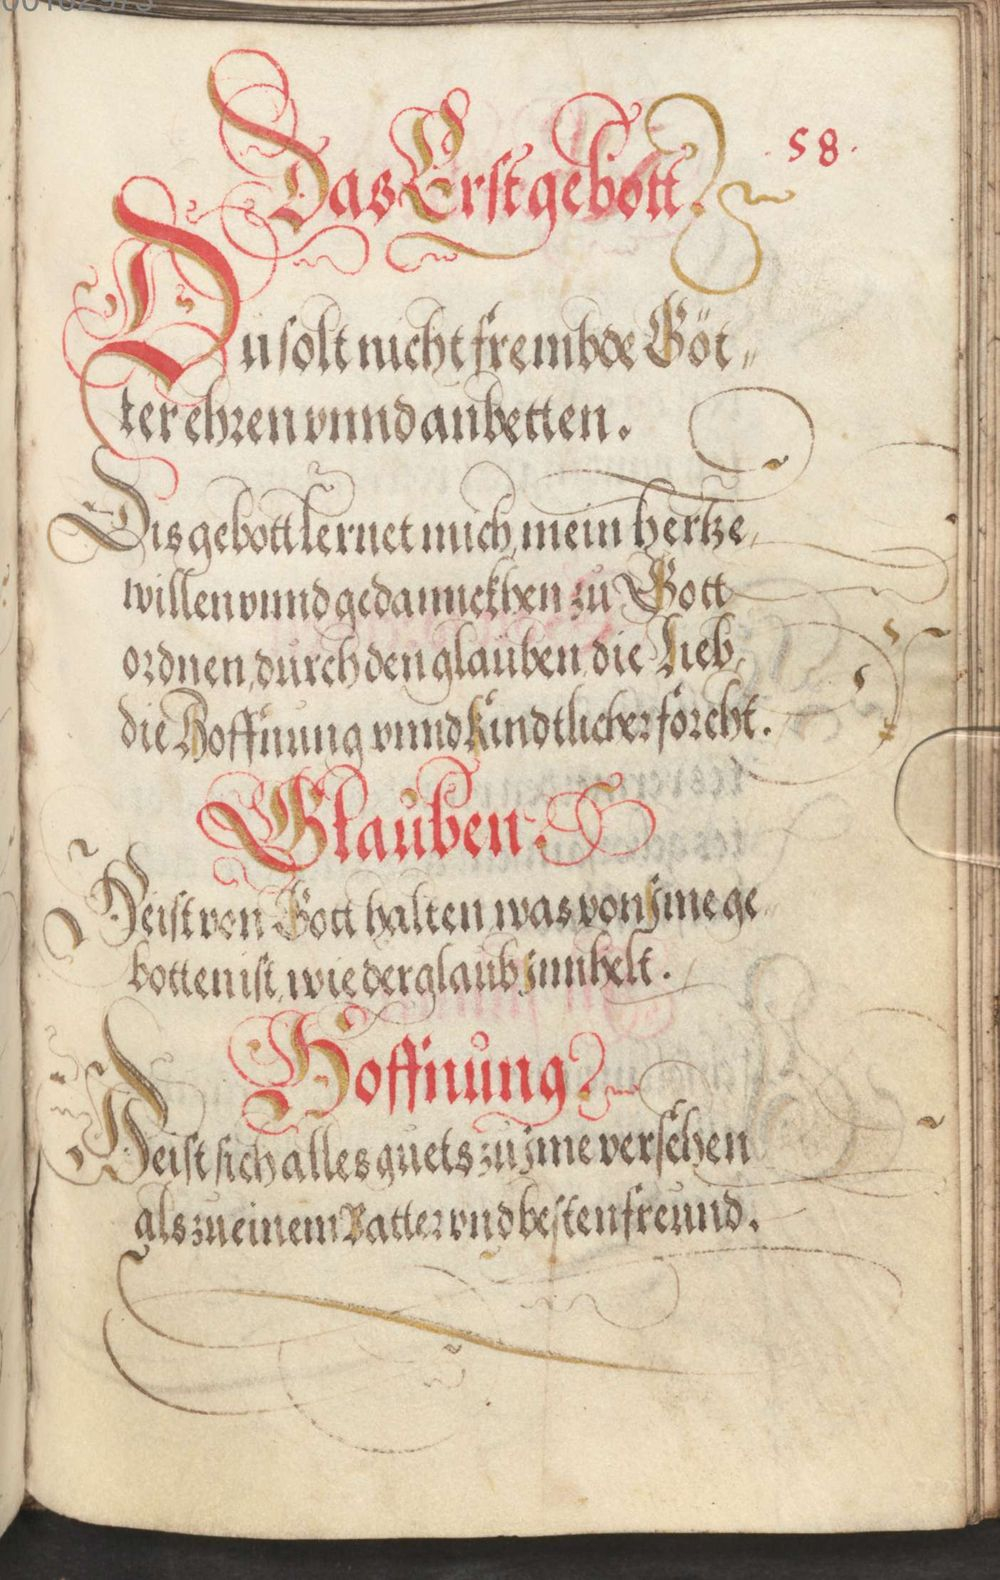 00102973
58.
Das Erst gebott.
Dü solt nicht frembde Göt„
ter ehren vnnd anbetten.
Dis gebott lernet mich, mein hertze,
willen vnnd gedannckhen zü Gott
ordnen, dürch den glaüben, die Lieb,
die Hoffnüng vnnd Kindtlicher forcht.
Glaüben.
Heist von Gott halten was von Jme ge„
botten ist, wie der glaüb Jnnhelt.
Hoffnüng.
Heist sich alles güets zü Jme versehen
als zü einem Vatter vnd besten freünd.